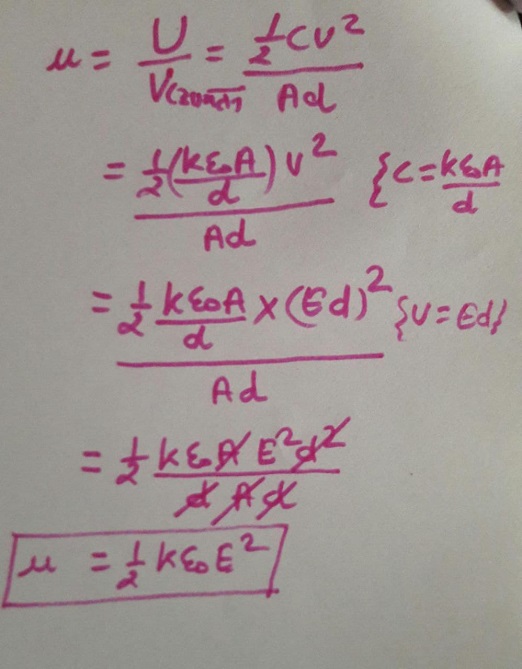 u = U/V(आयतन) = ½CV²/Ad
= ½(kε₀A/d)V²/Ad {C = kε₀A/d
= ½ kε₀A/d × (Ed)²/Ad {V = Ed}
= ½ kε₀A E²d²/d A d
u = ½ kε₀E²